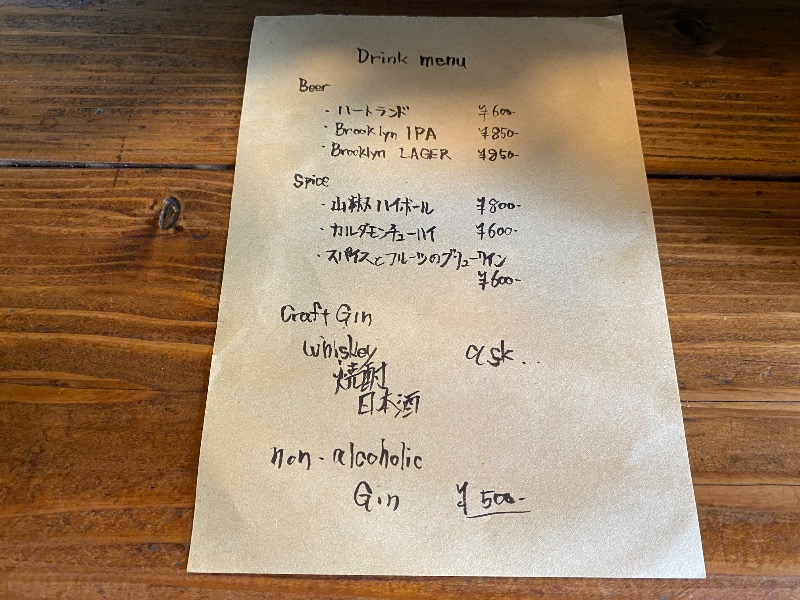 Drink menu
Beer
・ハートランド ¥600-
・Brooklyn IPA ¥850-
・Brooklyn LAGER ¥850-
Spice
・山椒ハイボール ¥800-
・カルダモンチューハイ ¥600-
・スパイスとフルーツのグリューワイン
¥600-
Craft Gin
Whiskey ask...
焼酎
日本酒
non-alcoholic
Gin ¥500-